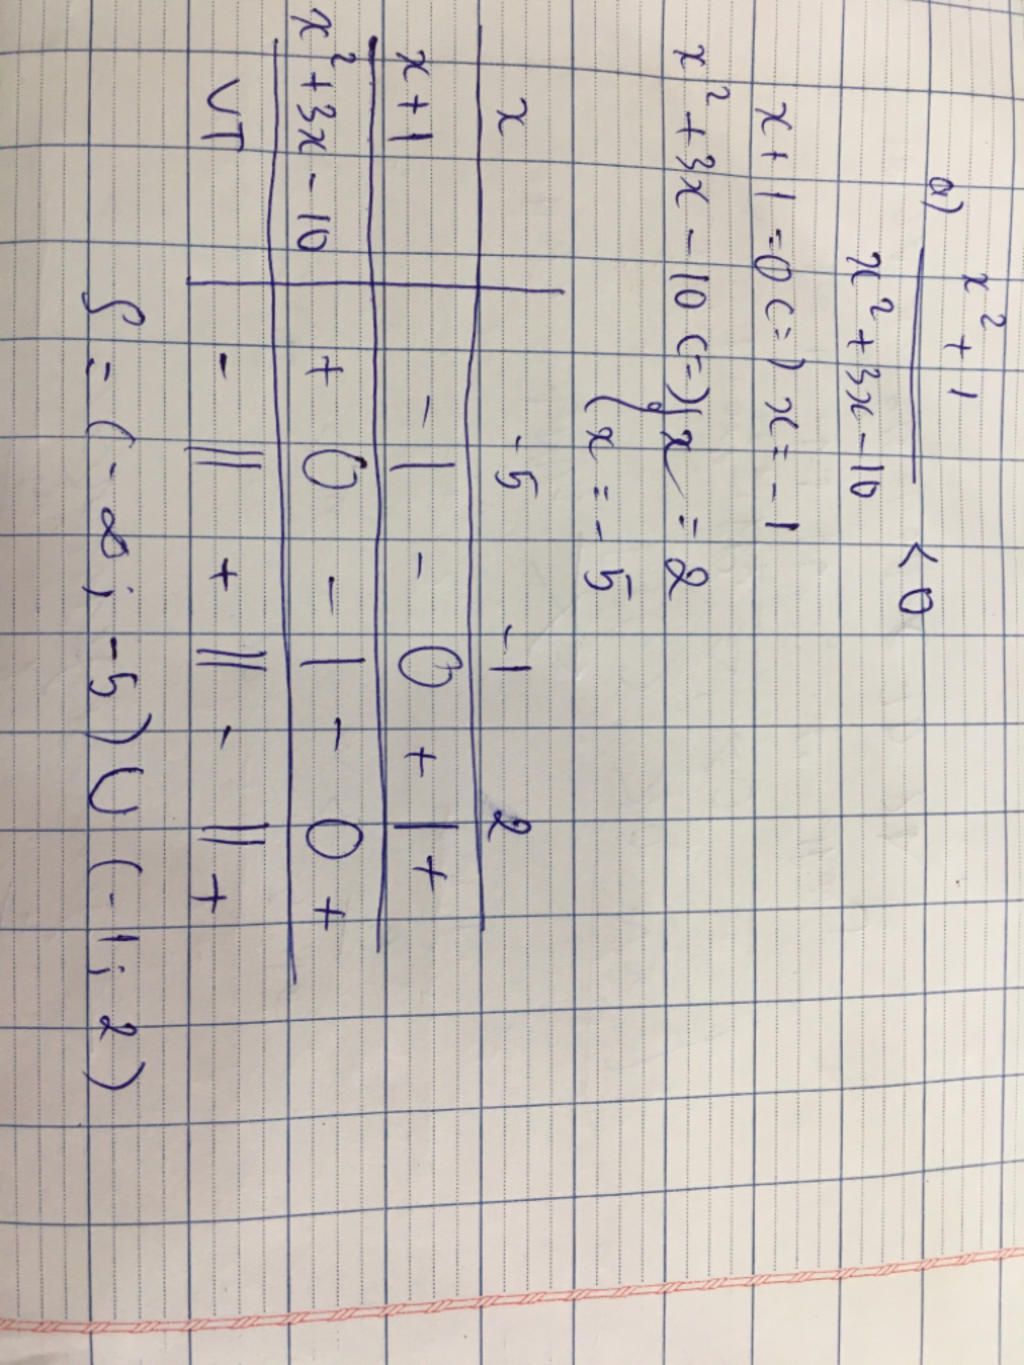 a) x² + 1 / x² + 3x - 10 < 0
x + 1 = 0 (=) x = -1
x² + 3x - 10 (=) { x = 2
{ x = -5
x | -5 -1 2
x + 1 | - | - 0 + | +
x² + 3x - 10 | + 0 - | - 0 +
VT | - || + || - || +
S = (-∞; -5) ∪ (-1; 2)